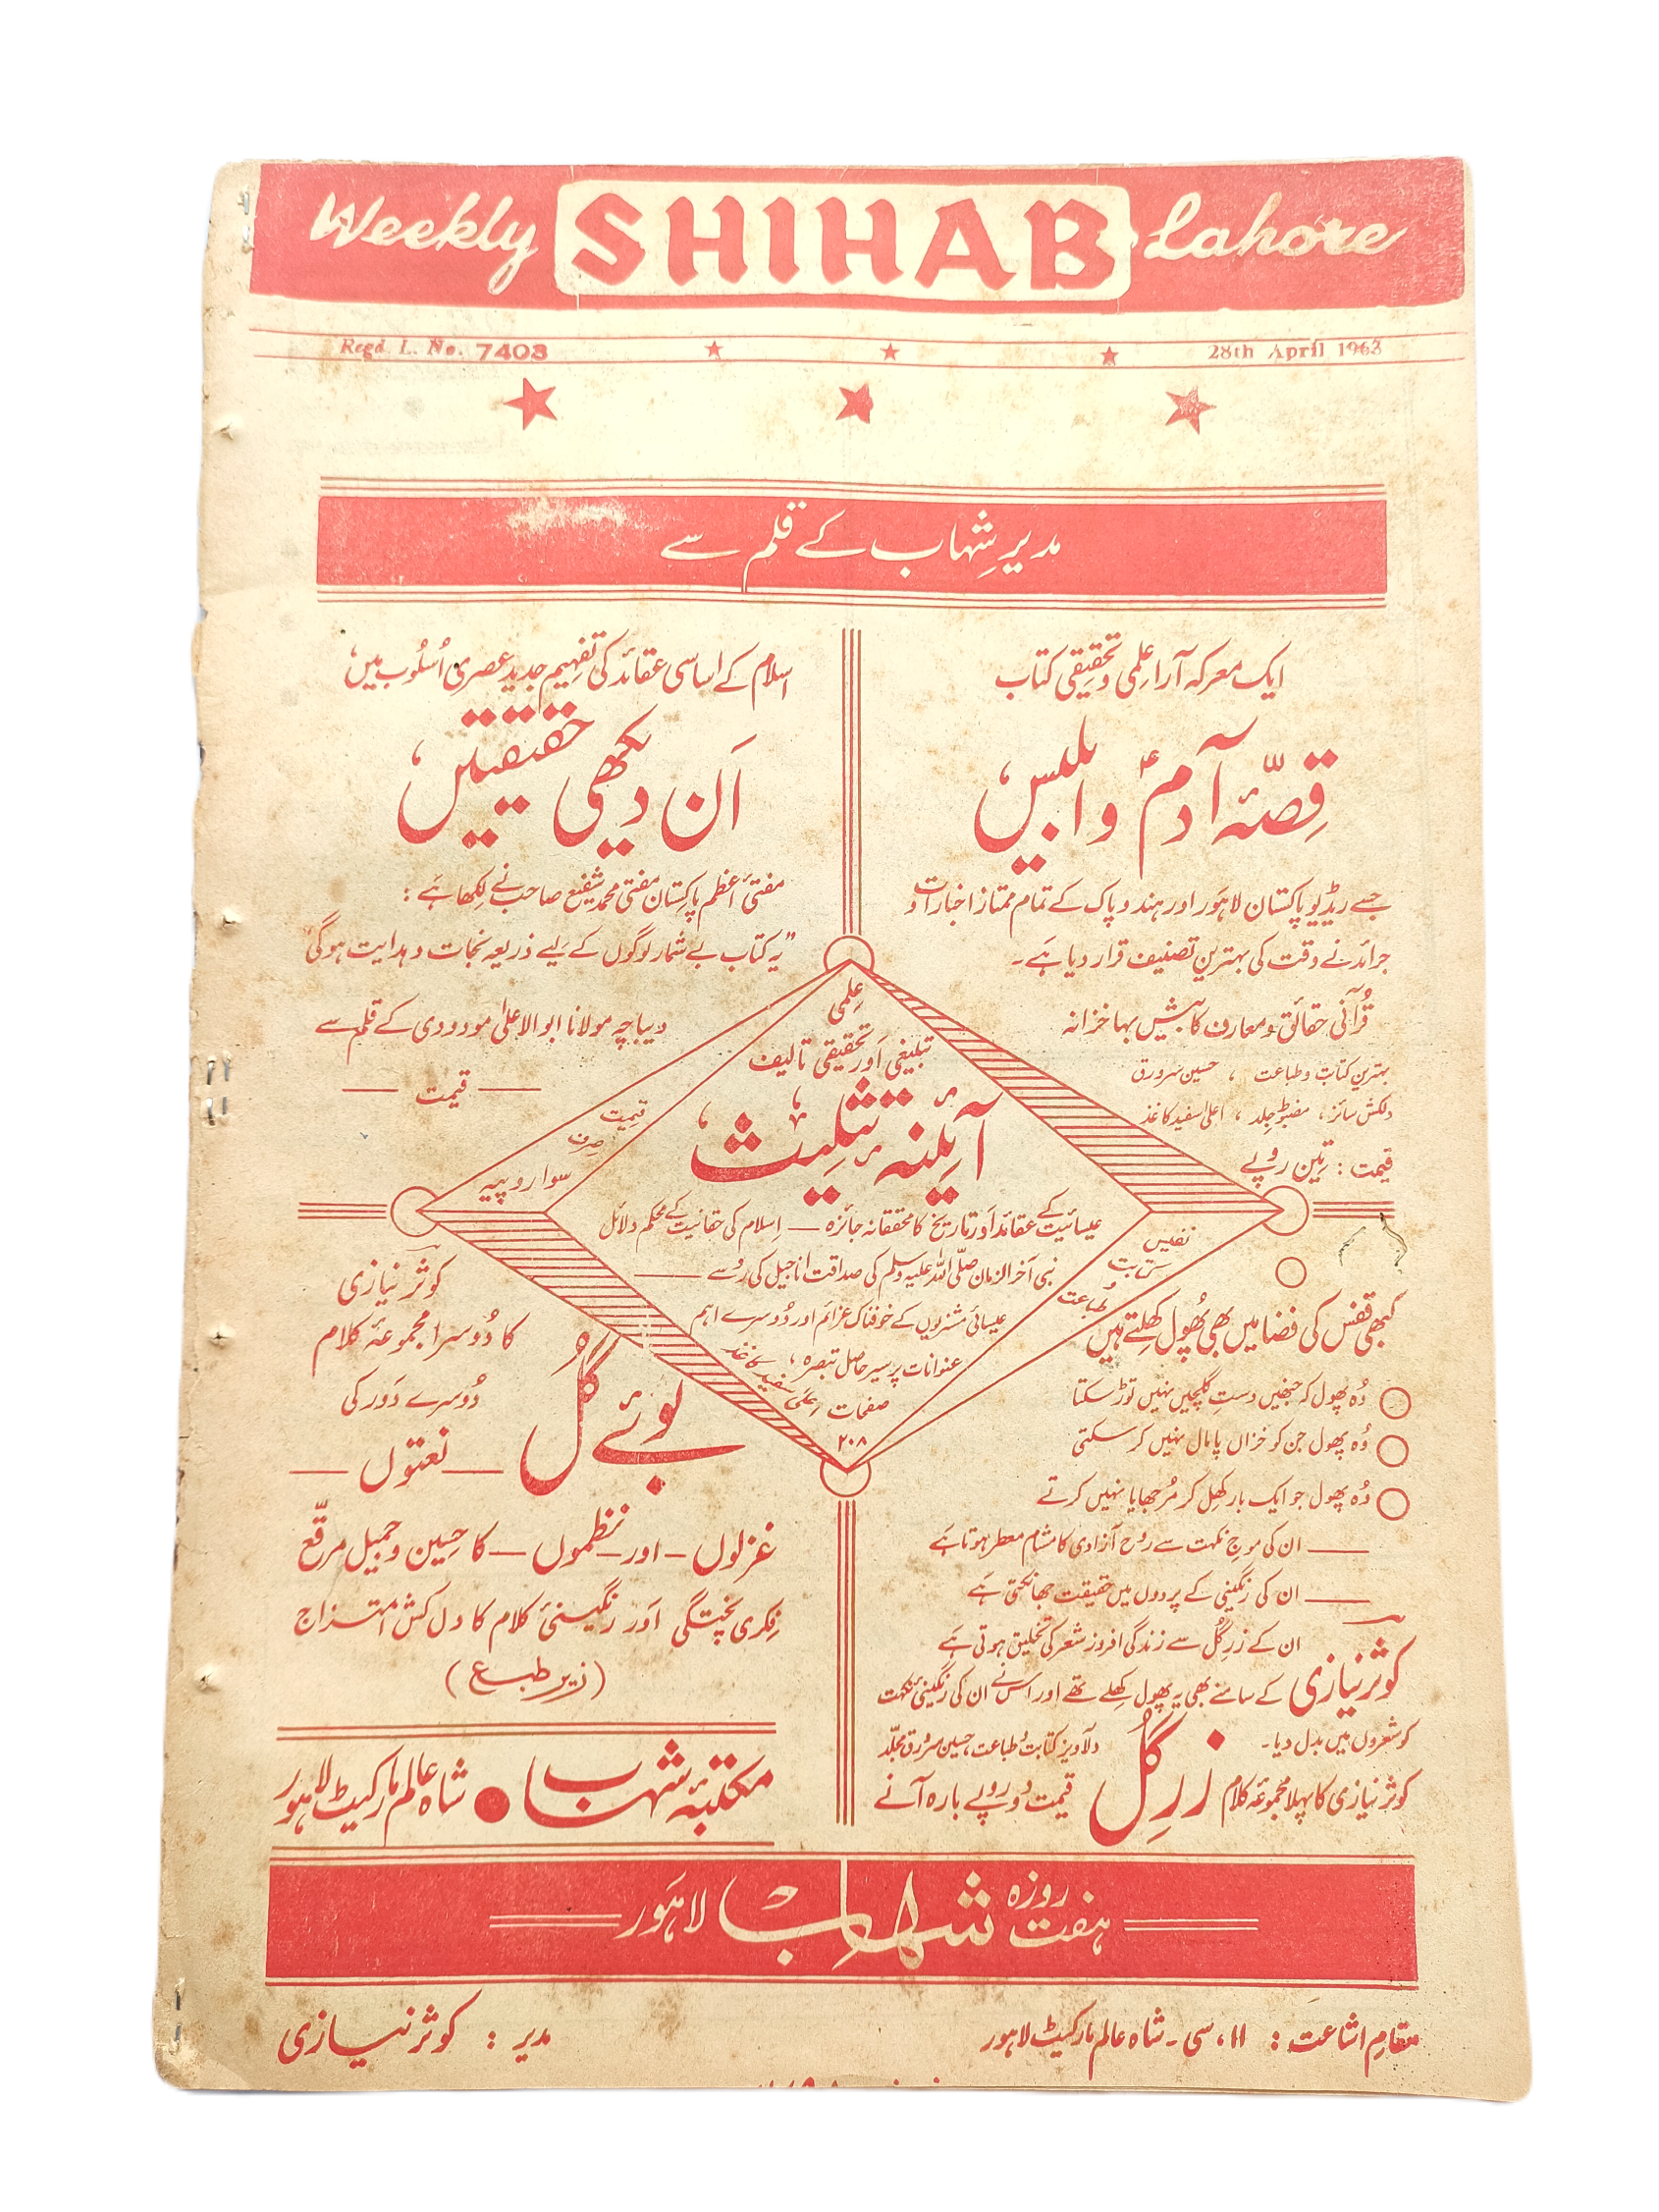 Weekly SHIHAB Lahore
Regd. L. No. 7403
28th April 1963
مدیر شہاب کے قلم سے
ایک معرکہ آرا علمی و تحقیقی کتاب
قصّۂ آدمؑ و ابلیس
جسے ریڈیو پاکستان لاہور اور ہند و پاک کے تمام ممتاز اخبارات و
جرائد نے وقت کی بہترین تصنیف قرار دیا ہے۔
قُرآنی حقائق و معارف کا بیش بہا خزانہ
بہترین کتابت و طباعت ، حسین سرورق
دلکش سائز ، مضبوط جلد ، اعلیٰ سفید کاغذ
قیمت : تین روپے
اسلام کے اساسی عقائد کی تفہیم جدید عصری اُسلُوب میں
اَن دیکھی حقیقتیں
مفتیٔ اعظم پاکستان مفتی محمد شفیع صاحب نے لکھا ہے :
"یہ کتاب بے شمار لوگوں کے لیے ذریعہ نجات و ہدایت ہوگی"
دیباچہ مولانا ابوالاعلیٰ مودودی کے قلم سے
— قیمت —
علمی
تبلیغی اور تحقیقی تالیف
آئینہ تثلیث
عیسائیت کے عقائد اور تاریخ کا محققانہ جائزہ — اِسلام کی حقانیت کے محکم دلائل
نبی آخر الزمان صلّی اللہ علیہ وسلم کی صداقت اناجیل کی رُو سے —
عیسائی مشنریوں کے خوفناک عزائم اور دُوسرے اہم
عنوانات پر سیر حاصل تبصرہ ،
صفحات
۲۰۸
قیمت
صرف
سوا روپیہ
نفیس
کتابت
و
طباعت
اعلیٰ سفید کاغذ
کبھی قفس کی فضا میں بھی پھُول کھِلتے ہیں
وُہ پھول کہ جنھیں دستِ گلچیں نہیں توڑ سکتا
وُہ پھول جن کو خزاں پامال نہیں کر سکتی
وُہ پھول جو ایک بار کھِل کر مُرجھایا نہیں کرتے
— ان کی موجِ نکہت سے روح آزادی کا مشام معطر ہوتا ہے
— ان کی رنگینی کے پردوں میں حقیقت جھانکتی ہے
ان کے زرِ گُل سے زندگی افروز شعر کی تخلیق ہوتی ہے
کوثر نیازی کے سامنے بھی یہ پھول کھِلے تھے اور اس نے ان کی رنگینیٔ نکہت
کو شعروں میں بدل دیا۔
کوثر نیازی کا پہلا مجموعۂ کلام زرِ گُل
دلآویز کتابت و طباعت، حسین سرورق مجلّد
قیمت دو روپے بارہ آنے
کوثر نیازی
کا دُوسرا مجموعۂ کلام
بُوئے گُل
دُوسرے دَور کی
— نعتوں —
غزلوں — اور — نظموں — کا حسین و جمیل مرقّع
فِکری پختگی اَور رنگینیٔ کلام کا دل کش امتزاج
(زیر طبع)
مکتبۂ شہاب ● شاہ عالم مارکیٹ لاہور
ہفت روزہ شہاب لاہَور
مقامِ اشاعت : ۱۱، سی۔ شاہ عالم مارکیٹ لاہور
مدیر : کوثر نیازی